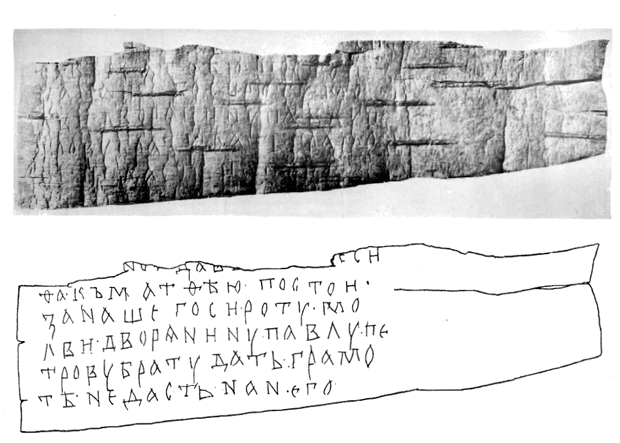 ЕСИ
ѲА·КЪ МАТѲѢЮ·ПОСТОИ·
ЗАНАШЕГОСИРОТУ·МО
ЛВИ·ДВОРѦНИНУ·ПАВЛУ·ПЕ
ТРОВУБРАТУ ДАТЬ·ГРАМО
ТѢ·НЕДАСТЬ·НАН·ЕГО